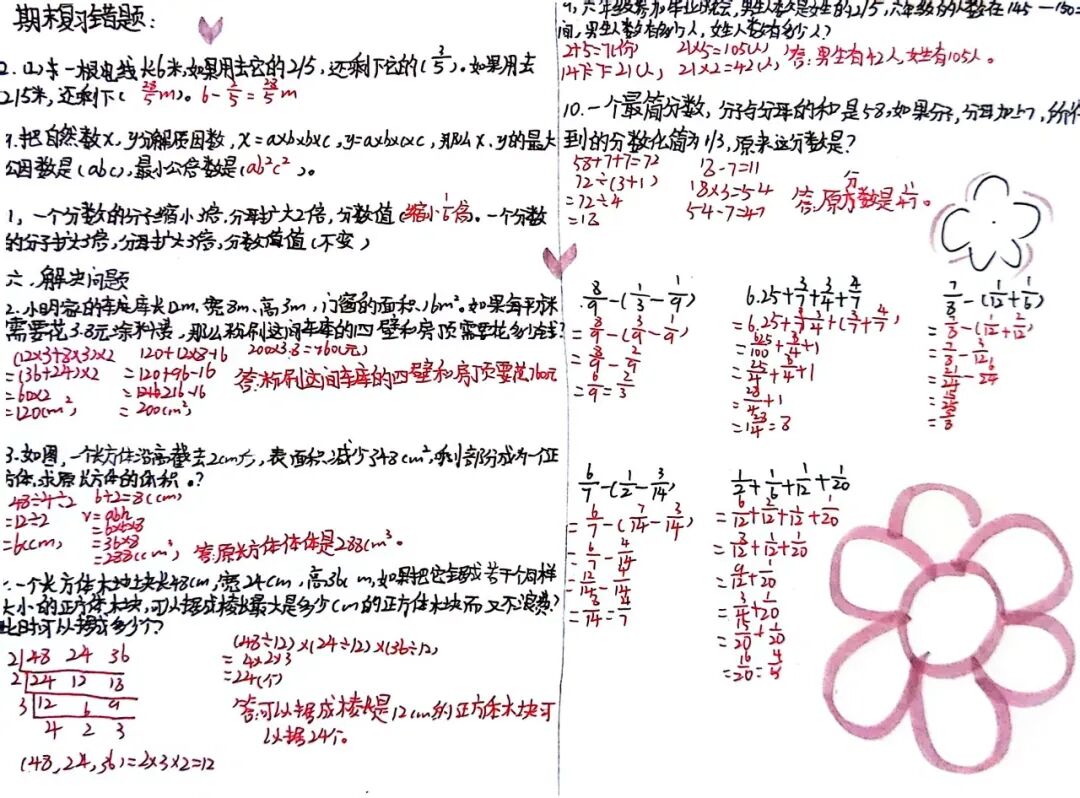 期末复习错题:
2.(1), 一根电线长6米,如果用去它的2/5,还剩下它的(3/5)。如果用去
2/5米,还剩下(28/5m)。6-2/5=28/5m
7.把自然数x,y分解质因数,x=axbxbxc,y=axbxcxc,那么x、y的最大
公因数是(abc),最小公倍数是(ab²c²)。
1,一个分数的分子缩小3倍,分母扩大2倍,分数值(缩小1/6倍)。一个分数
的分子扩大3倍,分母扩大3倍,分数值(不变)
六、解决问题
2.小明家的车库长12m,宽8m,高3m,门窗的面积16m²。如果每平方米
需要花3.8元涂料费,那么粉刷这间车库的四壁和房顶需要花多少钱?
(12x3+8x3)x2 120+12x8-16 200x3.8=760(元)
=(36+24)x2 =120+96-16 答:粉刷这间车库的四壁和房顶要花760元
=60x2 =216-16
=120(m²) =200(m²)
3.如图,一个长方体沿高截去2cm后,表面积减少了48cm²,剩部分成为一个正
方体,求原长方体的体积。?
48÷4÷2 6+2=8(cm)
=12÷2 V=abh
=6(cm) =6x6x8
=36x8
=288(cm³) 答:原长方体体是288cm³。
一个长方体木块长48cm,宽24cm,高36cm,如果把它锯成若干个同样
大小的正方体木块,可以锯成棱长最大是多少cm的正方体木块而又不浪费?
此时可以锯成多少个?
2|48 24 36
2|24 12 18
3|12 6 9
4 2 3
(48,24,36)=2x3x2=12
(48÷12)x(24÷12)x(36÷12)
=4x2x3
=24(个)
答:可以锯成棱长是12cm的正方体木块可
以锯24个。
9,六年级参加毕业晚会,男生人数是女生的2/5,六年级的人数在145—150
间,男生人数有多少人,女生人数有多少人?
2+5=7(份) 21x5=105(人) 答:男生有42人,女生有105人。
147÷7=21(人) 21x2=42(人)
10.一个最简分数,分子与分母的和是58,如果分子,分母加上7,
到的分数化简为1/3,原来这分数是?
58+7+7=72 18-7=11
72÷(3+1) 18x3=54
=72÷4 54-7=47
=18 答:原分数是11/47。
8/9-(1/3-1/9)
=8/9-(3/9-1/9)
=8/9-2/9
=6/9=2/3
6.25+3/7+3/4+4/7
=6.25+3/4+(3/7+4/7)
=625/100+3/4+1
=25/4+3/4+1
=28/4+1
7/8-(1/12+1/6)
=7/8-(1/12+2/12)
=7/8-3/12
=21/24-6/24
=15/24
=5/8
6/7-(1/2-3/14)
=6/7-(7/14-3/14)
=6/7-4/14
=12/14-4/14
=8/14=4/7
1/2+1/6+1/12+1/20
=6/12+2/12+1/12+1/20
=8/12+1/12+1/20
=9/12+1/20
=3/4+1/20
=15/20+1/20
=16/20=4/5